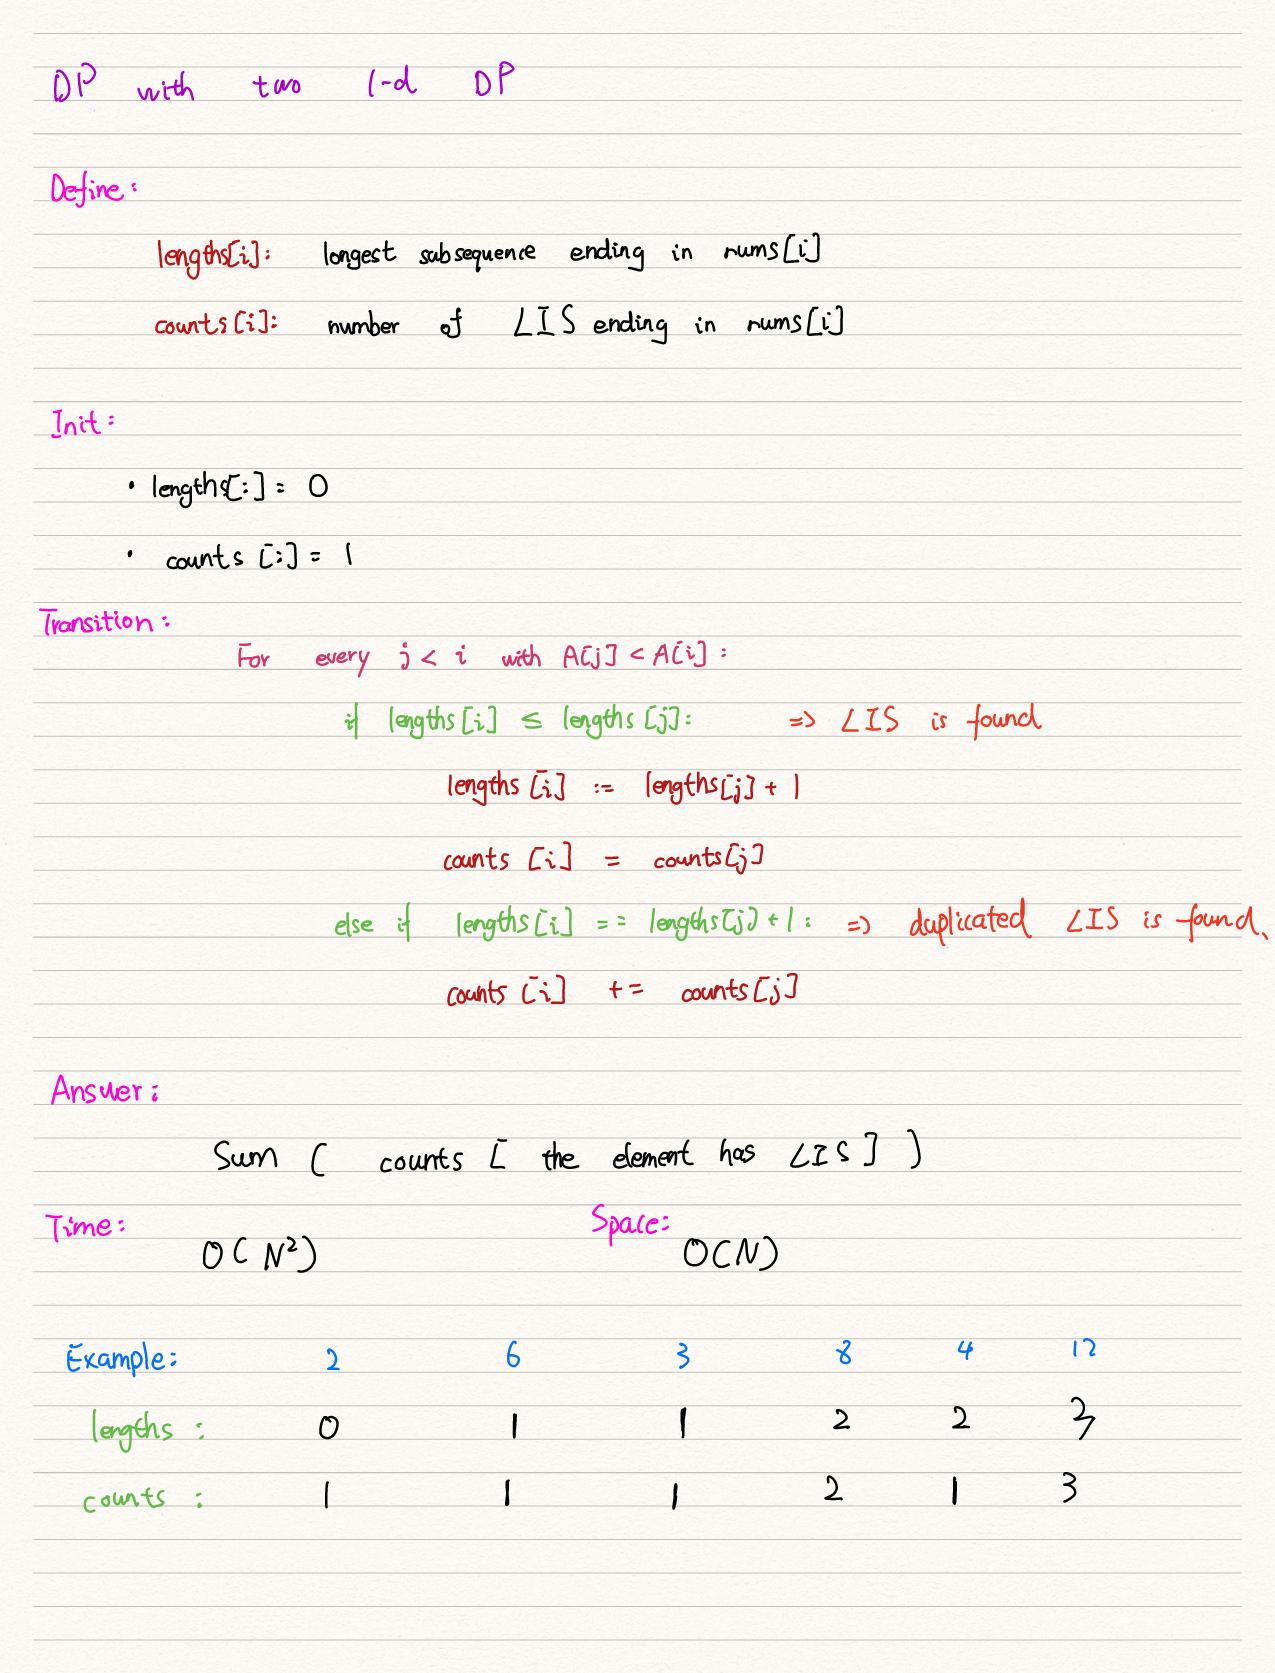 DP with two 1-d DP
Define:
lengths[i]: longest subsequence ending in nums[i]
counts[i]: number of LIS ending in nums[i]
Init:
• lengths[:] = 0
• counts [:] = 1
Transition:
For every j < i with A[j] < A[i] :
if lengths[i] ≤ lengths[j]: => LIS is found
lengths [i] := lengths[j] + 1
counts [i] = counts[j]
else if lengths[i] == lengths[j] + 1 : => duplicated LIS is found.
counts [i] += counts[j]
Answer:
Sum ( counts [ the element has LIS ] )
Time: Space:
O( N²) O(N)
Example: 2 6 3 8 4 12
lengths : 0 1 1 2 2 3
counts : 1 1 1 2 1 3